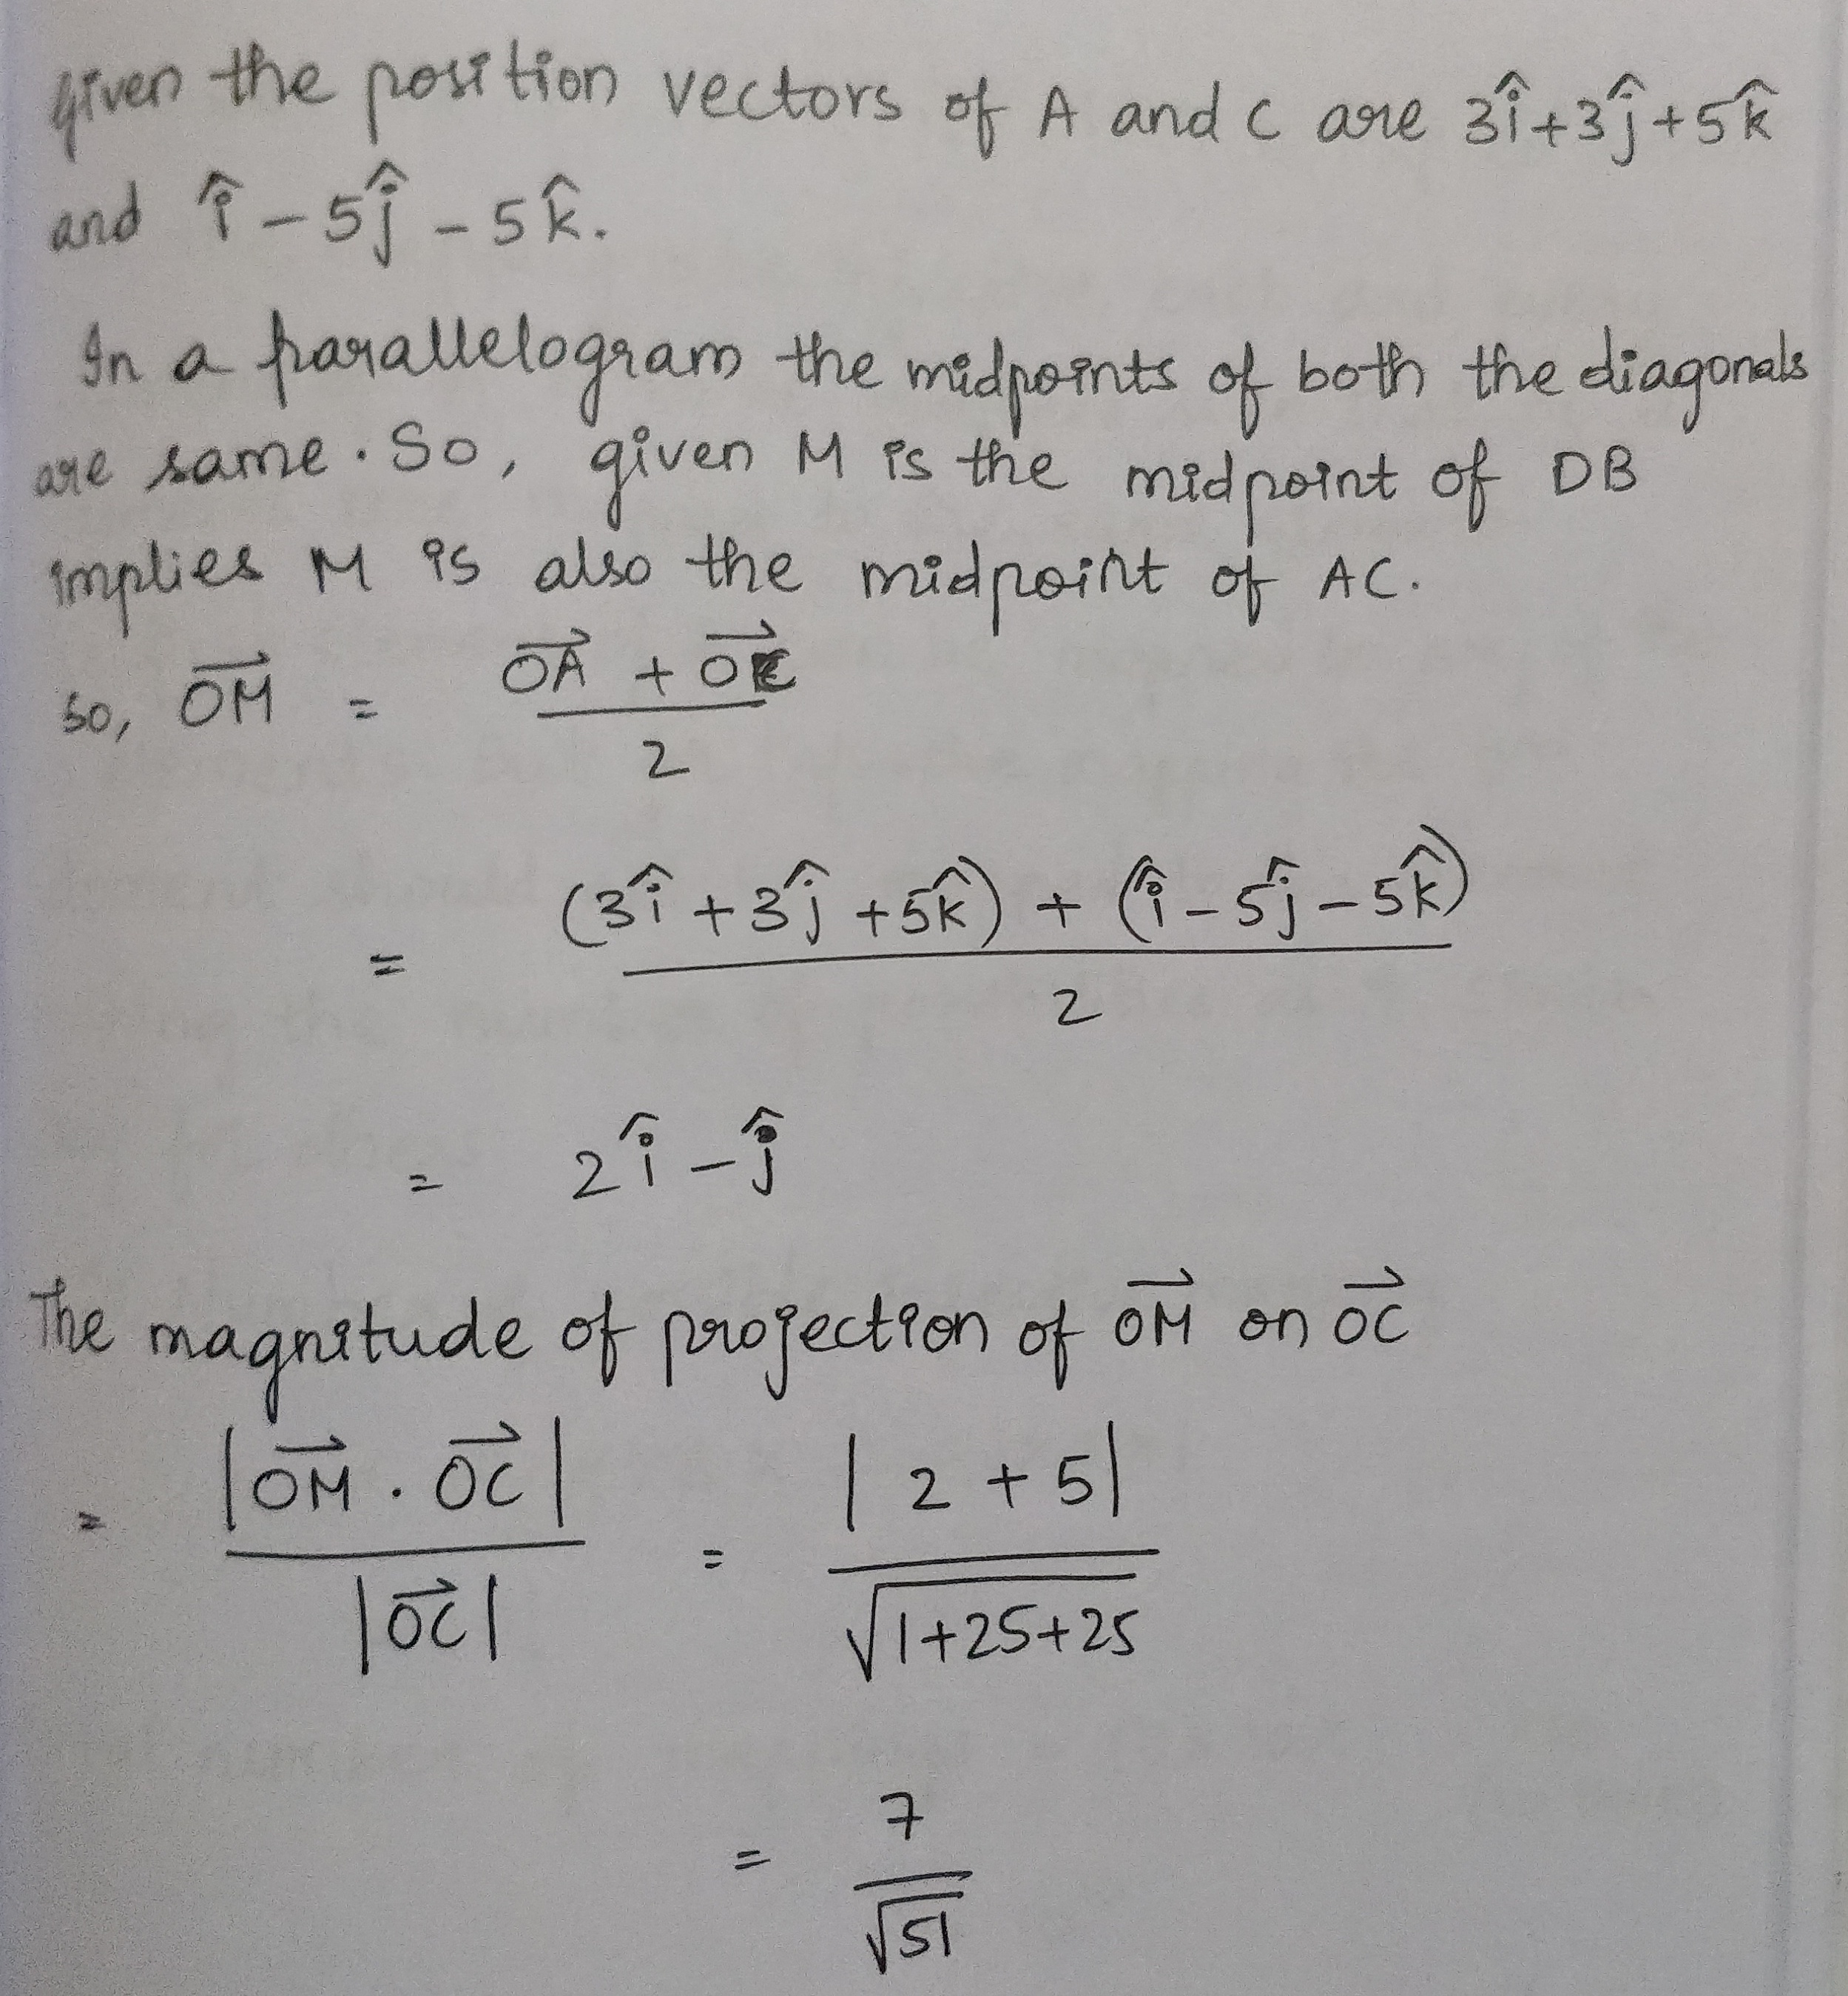 Given the position vectors of A and C are 3î+3ĵ+5k̂
and î - 5ĵ - 5k̂.
In a parallelogram the midpoints of both the diagonals
are same. So, given M is the midpoint of DB
implies M is also the midpoint of AC.
So, OM⃗ = (OA⃗ + OC⃗)/2
= ((3î + 3ĵ + 5k̂) + (î - 5ĵ - 5k̂))/2
= 2î - ĵ
The magnitude of projection of OM⃗ on OC⃗
= |OM⃗ . OC⃗| / |OC⃗| = |2 + 5| / √(1+25+25)
= 7/√51